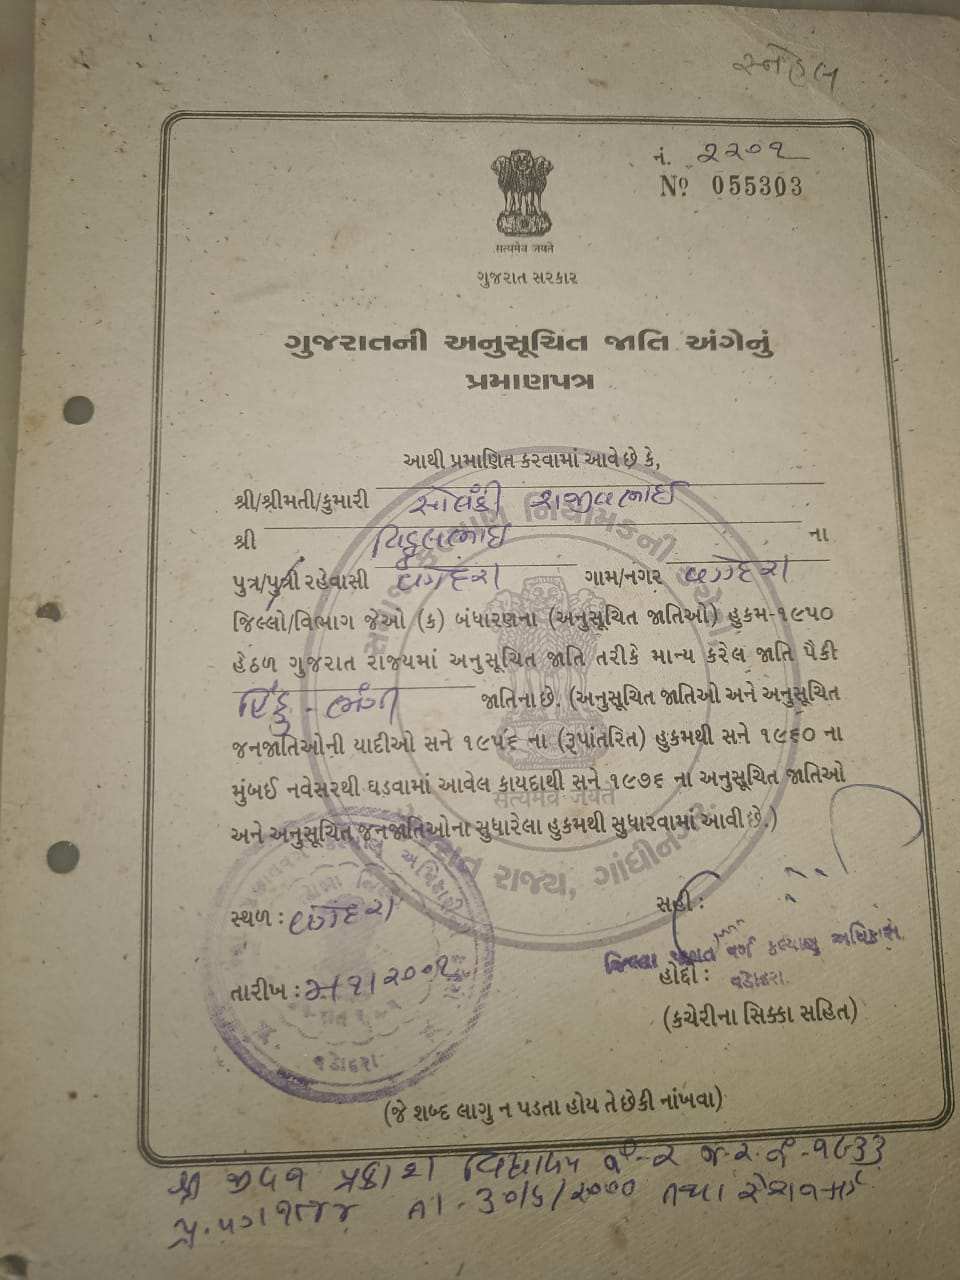 સ્નેહલ
નં. ૨૨૦૧
Nº 055303
सत्यमेव जयते
ગુજરાત સરકાર
ગુજરાતની અનુસૂચિત જાતિ અંગેનું
પ્રમાણપત્ર
આથી પ્રમાણિત કરવામાં આવે છે કે,
શ્રી/શ્રીમતી/કુમારી સોલંકી રાજીવભાઈ
શ્રી વિઠ્ઠલભાઇ ના
પુત્ર/પુત્રી રહેવાસી વડોદરા ગામ/નગર વડોદરા
જિલ્લો/વિભાગ જેઓ (ક) બંધારણના (અનુસૂચિત જાતિઓ) હુકમ-૧૯૫૦
હેઠળ ગુજરાત રાજ્યમાં અનુસૂચિત જાતિ તરીકે માન્ય કરેલ જાતિ પૈકી
હિંદુ - ભંગી જાતિના છે. (અનુસૂચિત જાતિઓ અને અનુસૂચિત
જનજાતિઓની યાદીઓ સને ૧૯૫૬ ના (રૂપાંતરિત) હુકમથી સને ૧૯૬૦ ના
મુંબઈ નવેસરથી ઘડવામાં આવેલ કાયદાથી સને ૧૯૭૬ ના અનુસૂચિત જાતિઓ
सत्यमेव जयते
અને અનુસૂચિત જનજાતિઓના સુધારેલા હુકમથી સુધારવામાં આવી છે.)
રાજ્ય, ગાંધીનગર
સ્થળ : વડોદરા
સહી :
જિલ્લા પછાત વર્ગ કલ્યાણ અધિકારી
વડોદરા
તારીખ :
હોદ્દો :
(કચેરીના સિક્કા સહિત)
વડોદરા
(જે શબ્દ લાગુ ન પડતા હોય તે છેકી નાંખવા)
શ્રી જીવન પ્રકાશ વિદ્યાલય
તા - ૩૦/૬/૨૦૦૦ તથા રેશનકાર્ડ